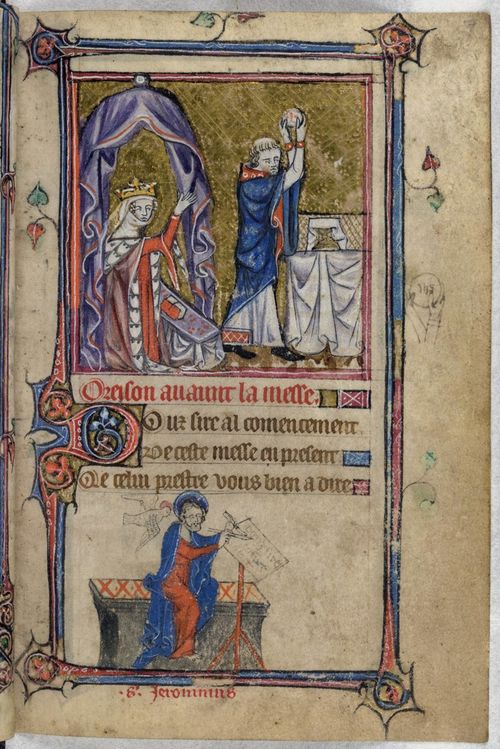 7
Oreison auaunt la messe.
Douz sire al comencement
De ceste messe en present
Qe celui prestre vous bien a dire
.S'. Jeronimus